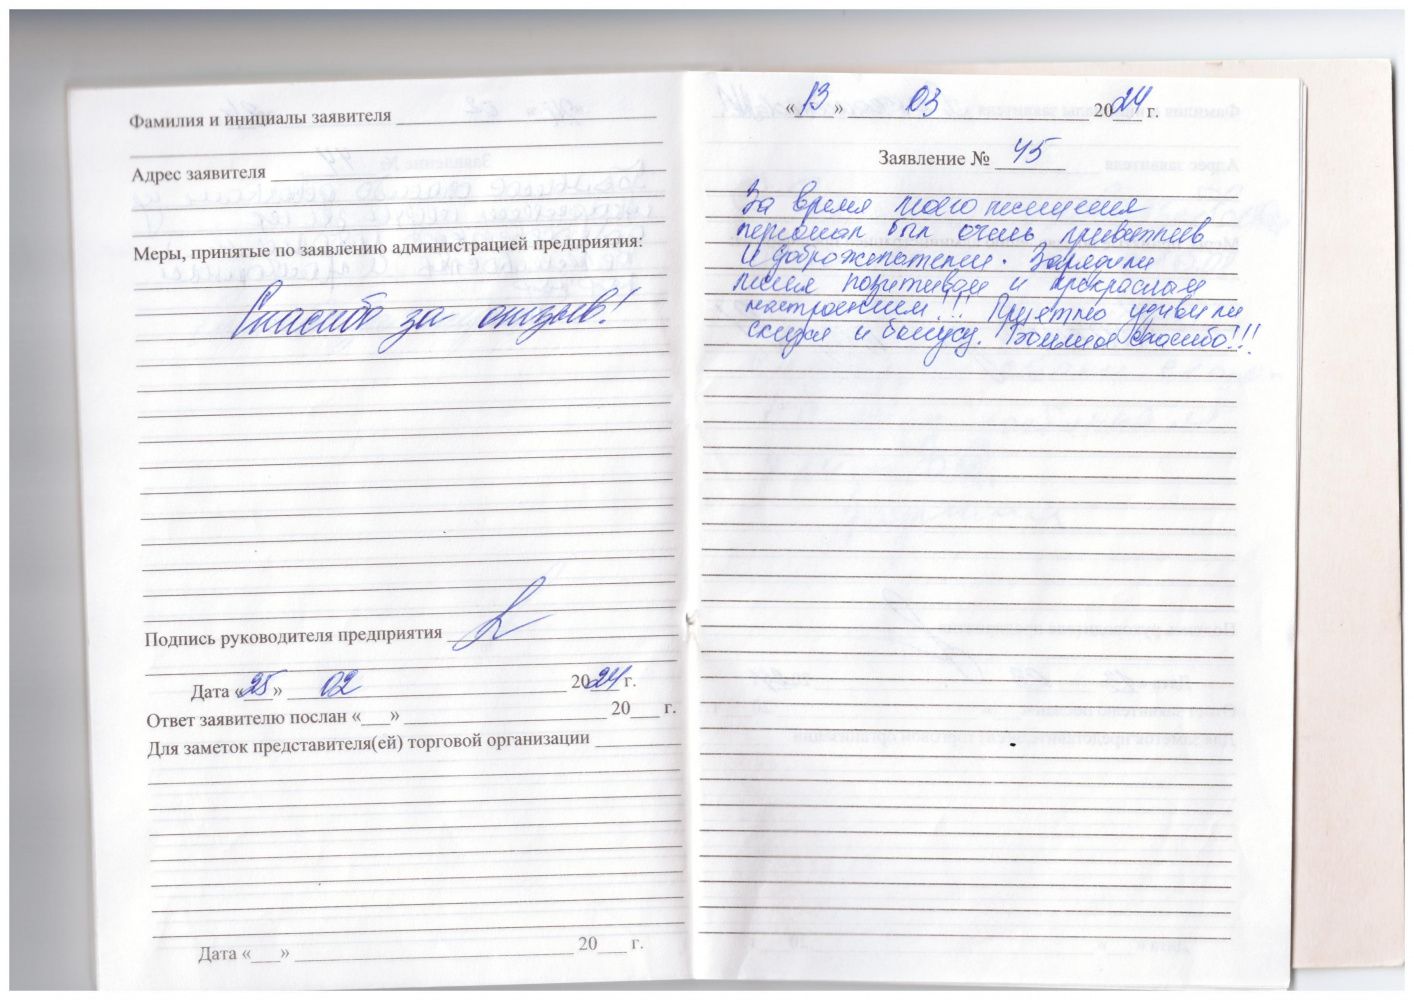 Фамилия и инициалы заявителя
Адрес заявителя
Меры, принятые по заявлению администрацией предприятия:
Спасибо за отзыв!
Подпись руководителя предприятия
Дата «25» 02 2024 г.
Ответ заявителю послан «___» 20___ г.
Для заметок представителя(ей) торговой организации
Дата «___» 20___ г.
«13» 03 2024 г.
Заявление № 45
За время моего посещения
персонал был очень приветлив
и доброжелателен. Зарядили
меня позитивом и прекрасным
настроением!!! Приятно удивили
скидки и бонусы. Большое спасибо!!!